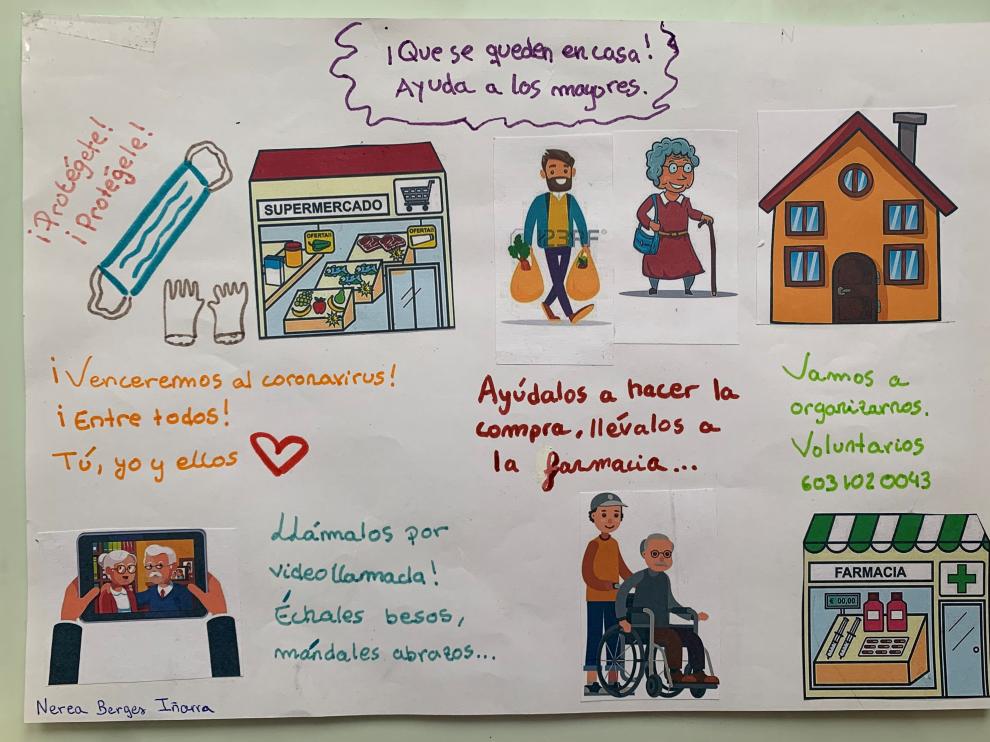 ¡Que se queden en casa!
Ayuda a los mayores.
¡Protégete!
¡Protégele!
SUPERMERCADO
OFERTA!!
OFERTA!!
¡Venceremos al coronavirus!
¡Entre todos!
Tú, yo y ellos
Ayúdalos a hacer la
compra, llévalos a
la farmacia...
Vamos a
organizarnos.
Voluntarios
603 102 0043
Llámalos por
videollamada!
Échales besos,
mándales abrazos...
FARMACIA
€ 00,00
Nerea Berges Iñarra